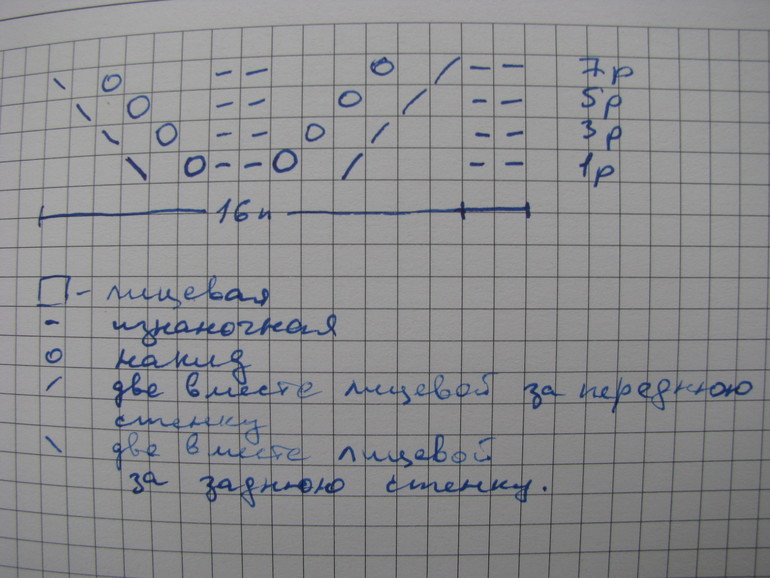 \ O - - O / - - 7р
\ O - - O / - - 5р
\ O - - O / - - 3р
\ O - - O / - - 1р
16п
□ - лицевая
- изнаночная
O накид
/ две вместе лицевой за переднюю
стенку
\ две вместе лицевой
за заднюю стенку.